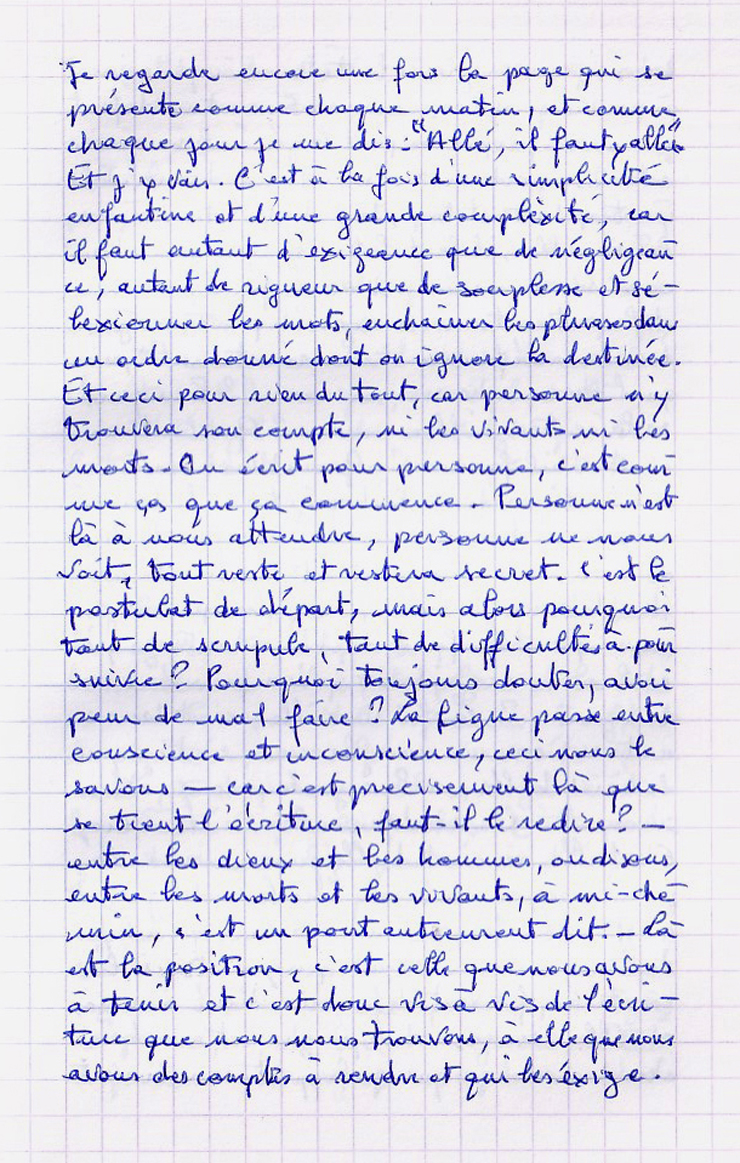 Je regarde encore une fois la page qui se
présente comme chaque matin, et comme
chaque jour je me dis : "Allé, il faut y aller"
Et j'y vais. C'est à la fois d'une simplicité
enfantine et d'une grande complèxité, car
il faut autant d'exigeance que de négligean
ce, autant de rigueur que de souplesse et sé-
lexionner les mots, enchaîner les phrases dans
un ordre donné dont on ignore la destinée.
Et ceci pour rien du tout, car personne n'y
trouvera son compte, ni les vivants ni les
morts. On écrit pour personne, c'est com
me ça que ça commence. Personne n'est
là à nous attendre, personne ne nous
voit, tout reste et restera secret. C'est le
postulat de départ, mais alors pourquoi
tant de scrupule, tant de difficultés à pour
suivre ? Pourquoi toujours douter, avoir
peur de mal faire ? La ligne passe entre
conscience et inconscience, ceci nous le
savons — car c'est precisement là que
se tient l'écriture, faut-il le redire ? —
entre les dieux et les hommes, ou disons,
entre les morts et les vivants, à mi-che
min, c'est un pont autrement dit. — Là
est la position, c'est celle que nous avons
à tenir et c'est donc vis à vis de l'écri-
ture que nous nous trouvons, à elle que nous
avons des comptes à rendre et qui les éxige.